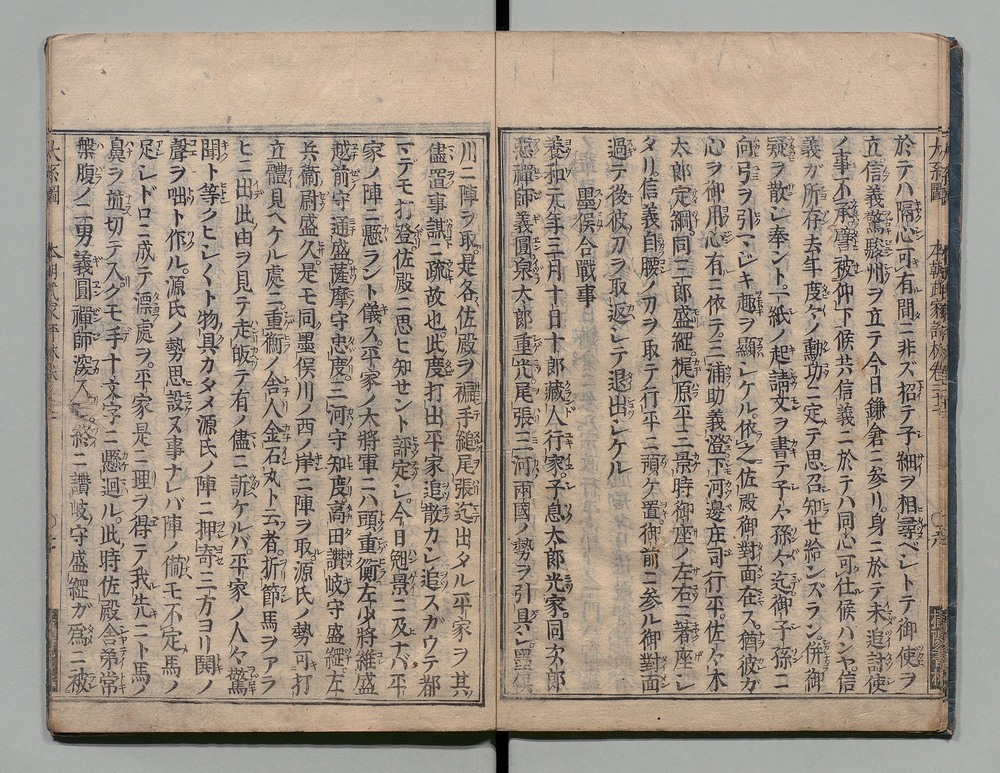 於テハ隔心可有間ニ非ス招テ子細ヲ相尋ベシトテ御使ヲ
立信義驚駿州ヲ立テ今日鎌倉ニ参リ身ニ於テ未追討使
ノ事不承讐被仰下候共信義ニ於テハ同心可仕候ハンヤ信
義ガ所存去年度々ノ勲功ニ定テ思召知セ給ンズラン併御
疑ヲ散シ奉ント一紙ノ起請文ヲ書テ子々孫々迄御子孫ニ
向弓ヲ引マジキ趣ヲ顕シケル依之佐殿御對面在ス猶彼ガ
心ヲ御用心有ニ依テ三浦助義澄下河邊庄司行平佐々木
太郎定綱同三郎盛綱梶原平三景時御座ノ左右ニ著座シ
タリ信義自腰ノ刀ヲ取テ行平ニ預ケ置御前ニ参ル御對面
過テ後彼刀ヲ取返シテ退出シケル
墨俣合戰事
養和元年三月十日十郎藏人行家子息太郎光家同次郎
悪禪師義圓泉太郎重光尾張三河兩國ノ勢ヲ引具シ墨俣
川ニ陣ヲ取是各佐殿ヲ手縋尾張迄出タル平家ヲ其
儘置事謀ニ疏故也此度打出平家追散カシ追スガウテ都
マデモ打登佐殿ニ思ヒ知セント評定シ今日短景ニ及ナバ平
家ノ陣ニ懸ラント儀ス平家ノ大將軍ニハ頭重衡左少將維盛
越前守通盛薩摩守忠度三河守知度高田讃岐守盛綱左
兵衛尉盛久是モ同墨俣川ノ西ノ岸ニ陣ヲ取源氏ノ勢可打
立體見ヘケル處ニ重衡ノ舎人金石丸ト云者折節馬ヲアラ
ヒニ出此由ヲ見テ走飯テ有ノ儘ニ訴ケルバ平家ノ人々驚
聞ト等クヒシ〱ト物ノ具カタメ源氏ノ陣ニ押寄三方ヨリ閧ノ
聲ヲ咄ト作ル源氏ノ勢思設ヌ事ナレバ陣ノ備モ不定馬ノ
足シドロニ成テ漂處ヲ平家是ニ理ヲ得テ我先ニト馬ノ
鼻ヲ並切テスクモ手十文字ニ懸廻ル此時佐殿舎弟常
盤腹ノ二男義圓禪師深入シ終ニ讃岐守盛綱ガ爲ニ被
大系圖